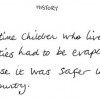 HISTORY
time children who live
ties had to be evac
se it was safer
country.